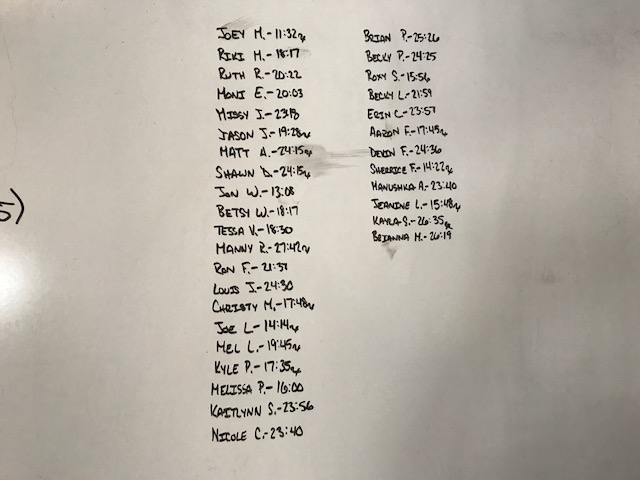 JOEY M.- 11:32rx
RIKI H.- 18:17
RUTH R.- 20:22
MONI E.- 20:03
MISSY J.- 23:18
JASON J.- 19:28rx
MATT A.- 24:15rx
SHAWN D.- 24:15rx
JON W.- 13:08
BETSY W.- 18:17
TESSA V.- 18:30
MANNY R.- 27:42rx
RON F.- 21:37
LOUIS J.- 24:30
CHRISTY M.- 17:48rx
JOE L.- 14:14rx
MEL L.- 19:45rx
KYLE P.- 17:35rx
MELISSA P.- 16:00
KAITLYNN S.- 23:56
NICOLE C.- 23:40
BRIAN P.- 25:26
BECKY P.- 24:25
ROXY S.- 15:56
BECKY L.- 21:59
ERIN C.- 23:57
AARON F.- 17:45rx
DEVON F.- 24:36
SHERRICE F.- 14:22rx
MANUSHKA A.- 23:40
JEANINE L.- 15:48rx
KAYLA S.- 26:35rx
BRIANNA M.- 26:19